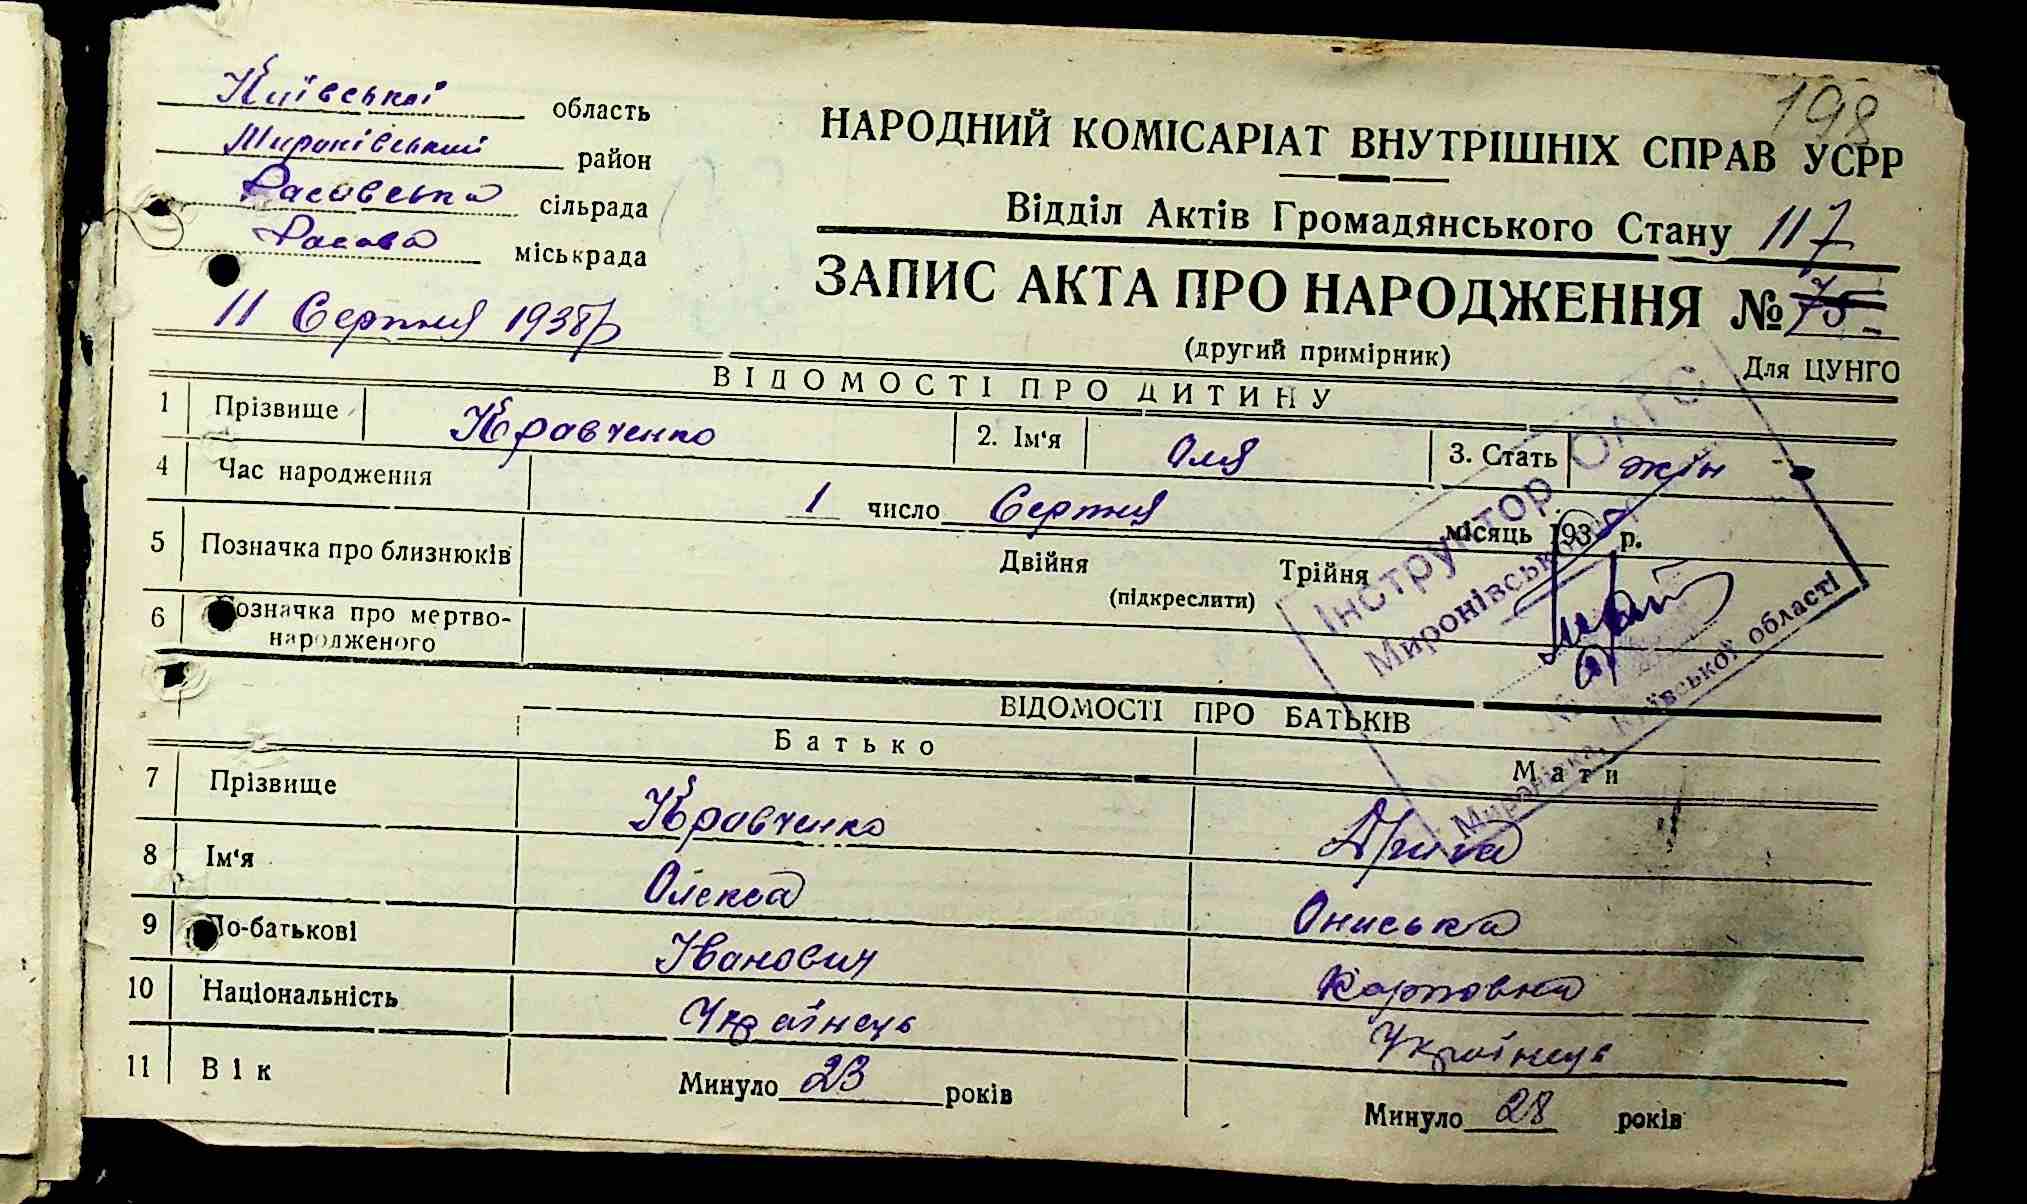 198
Київської область
Миронівський район
Расавська сільрада
Расава міськрада
11 Серпня 1938 р
НАРОДНИЙ КОМІСАРІАТ ВНУТРІШНІХ СПРАВ УСРР
Відділ Актів Громадянського Стану 117
ЗАПИС АКТА ПРО НАРОДЖЕННЯ № 75
(другий примірник)
Для ЦУНГО
ВІДОМОСТІ ПРО ДИТИНУ
1 Прізвище Кравченко 2. Ім‘я Оля 3. Стать жін
4 Час народження 1 число Серпня місяць 1938 р.
5 Позначка про близнюків Двійня Трійня
(підкреслити)
6 Позначка про мертво-
народженого
Інструктор ОАГС
Миронівськ
Миронівка, Київської області
ВІДОМОСТІ ПРО БАТЬКІВ
Батько Мати
7 Прізвище Кравченко
8 Ім‘я Олекса Ониська
9 По-батькові Іванович Карповна
10 Національність Українець Українець
11 Вік Минуло 23 років Минуло 28 років